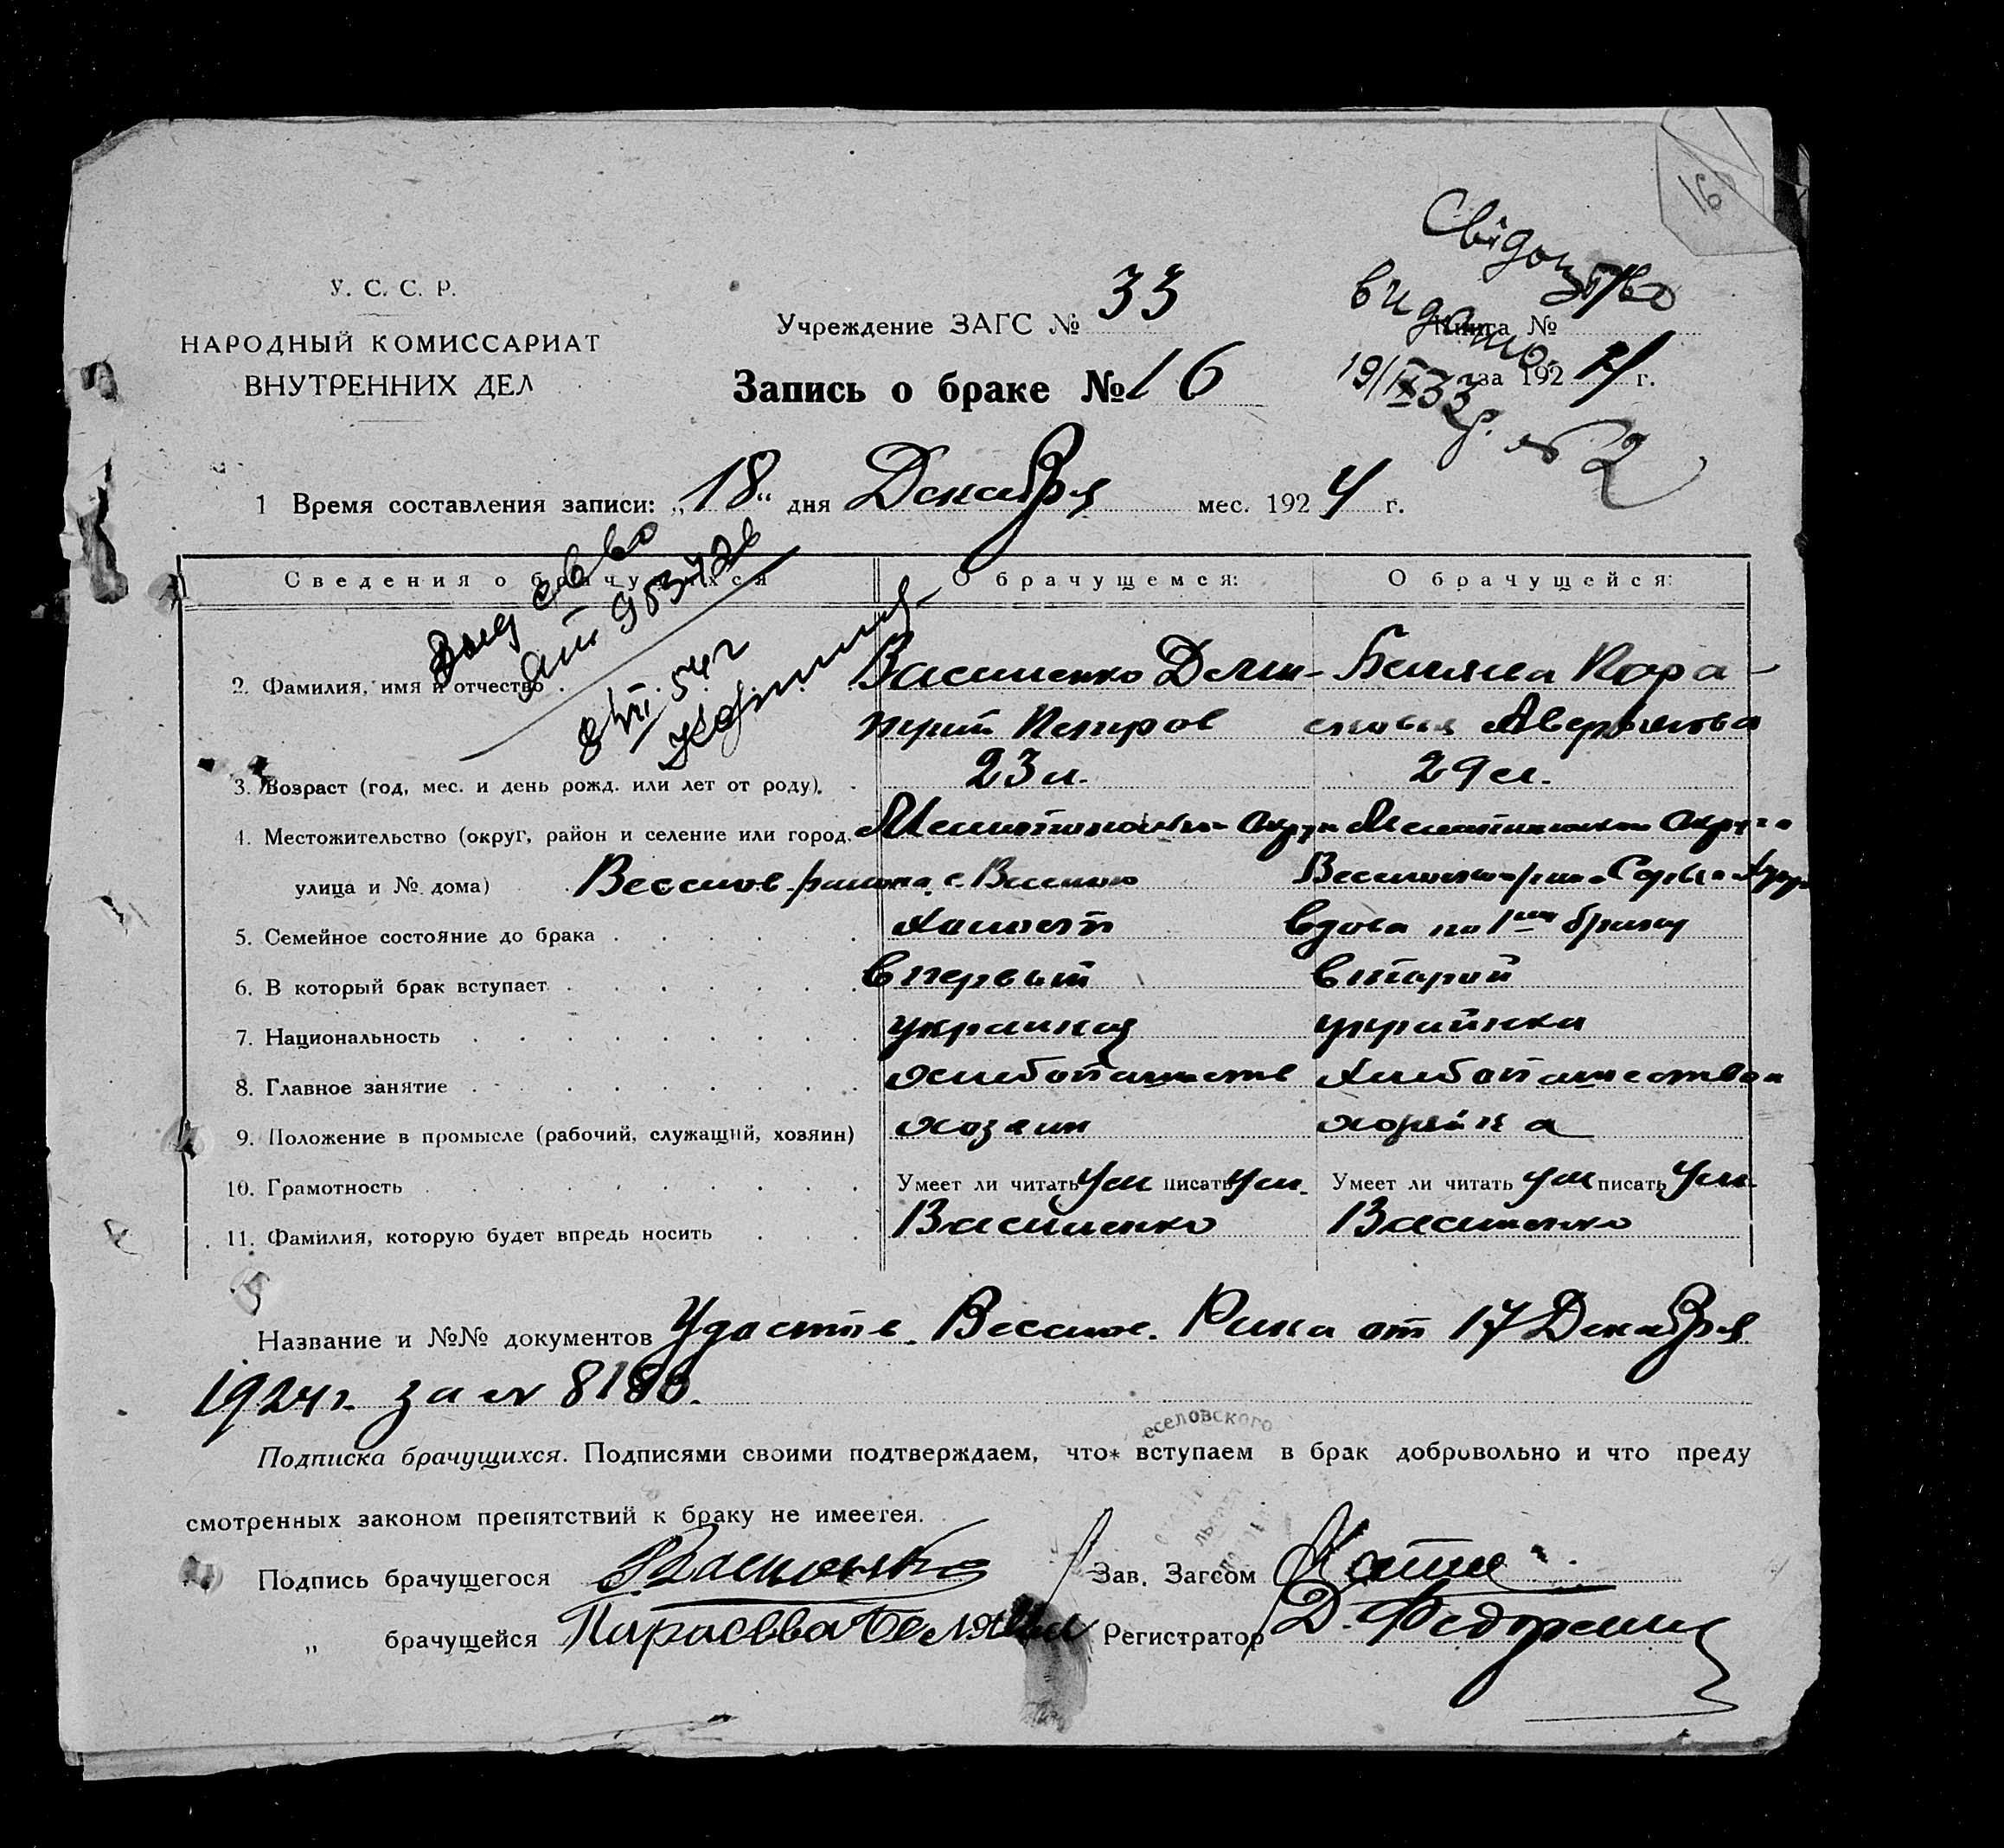 16
Свідоцтво
видано
19/IX 33 р. № 2
У. С. С. Р.
НАРОДНЫЙ КОМИССАРИАТ
ВНУТРЕННИХ ДЕЛ
Учреждение ЗАГС № 33
Книга №
за 1924 г.
Запись о браке № 16
1 Время составления записи: „18“ дня Декабря мес. 1924 г.
Сведения о брачущихся
О брачущемся:
О брачущейся:
2. Фамилия, имя и отчество
Василенко Дми-
трий Петров
Беляева Пара-
сковья Аверьянова
3. Возраст (год, мес. и день рожд. или лет от роду). 23 л. 29 л.
4. Местожительство (округ, район и селение или город,
улица и № дома)
Мелитопольск Округа
Веселов. района с. Веселое
Мелитопольск Округа
5. Семейное состояние до брака холост вдова по 1му браку
6. В который брак вступает в первый второй
7. Национальность украинец украинка
8. Главное занятие хлебопашеств хлебопашество
9. Положение в промысле (рабочий, служащий, хозяин) хозяин хозяйка
10. Грамотность Умеет ли читать ум писать ум. Умеет ли читать ум писать ум.
11. Фамилия, которую будет впредь носить Василенко Василенко
Название и №№ документов Удостов. Веселов. Рика от 17 Декабря
1924 г. за № 8180.
еселовского
Подписка брачущихся. Подписями своими подтверждаем, что вступаем в брак добровольно и что преду
смотренных законом препятствий к браку не имеется.
Подпись брачущегося Василенко Зав. Загсом
„ брачущейся Парасква Беляева Регистратор Д. Федоренко